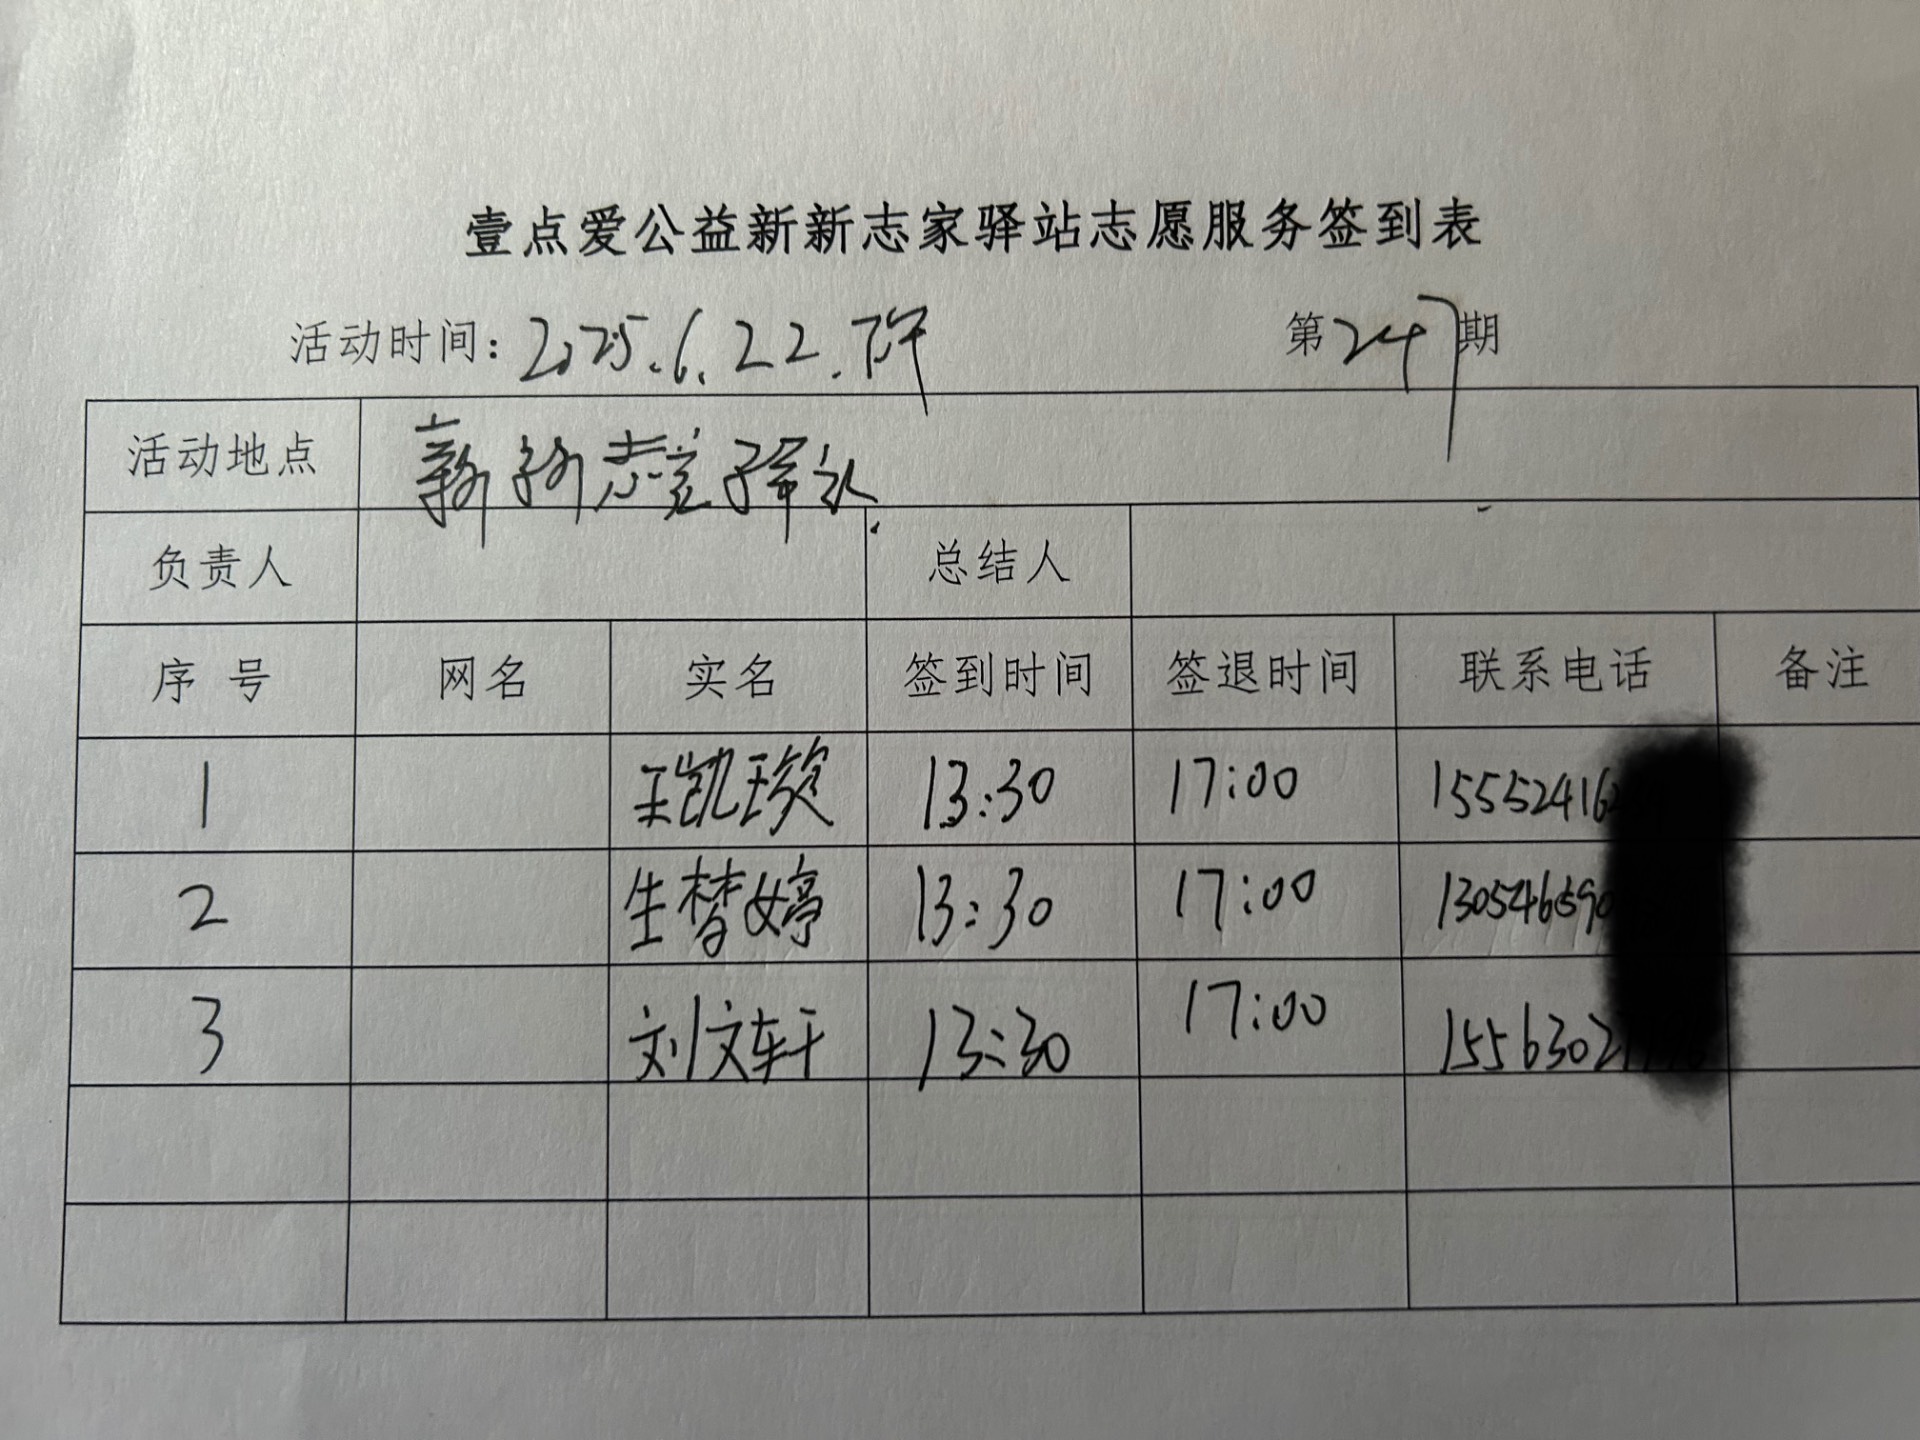 壹点爱公益新新志家驿站志愿服务签到表
活动时间：2025.6.22.下午 第247期
活动地点 新新志家驿站
负责人 总结人
序号 网名 实名 签到时间 签退时间 联系电话 备注
1 王凯琰 13:30 17:00 15552416
2 生梦婷 13:30 17:00 130546590
3 刘文轩 13:30 17:00 15563027